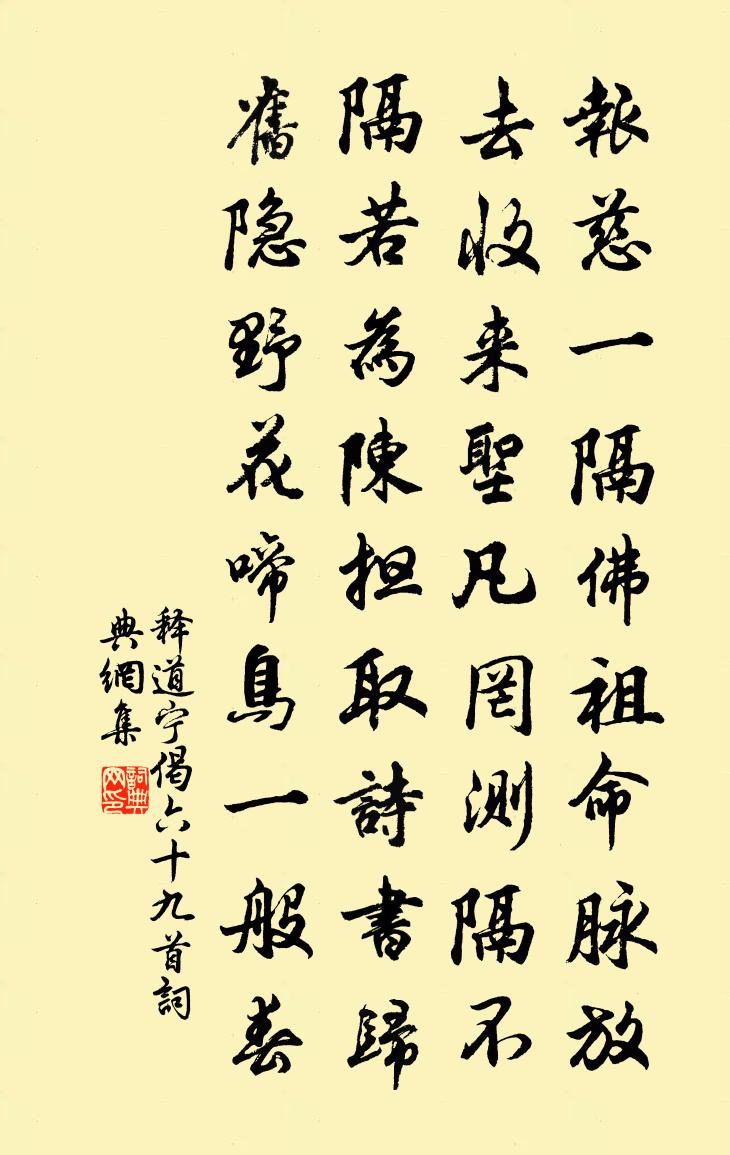 報慈一隔佛祖命脉放
去收来聖凡罔測隔不
隔若為陳担取詩書歸
舊隐野花啼鳥一般春
释道宁偈六十九首詞
典網集
詞典网印